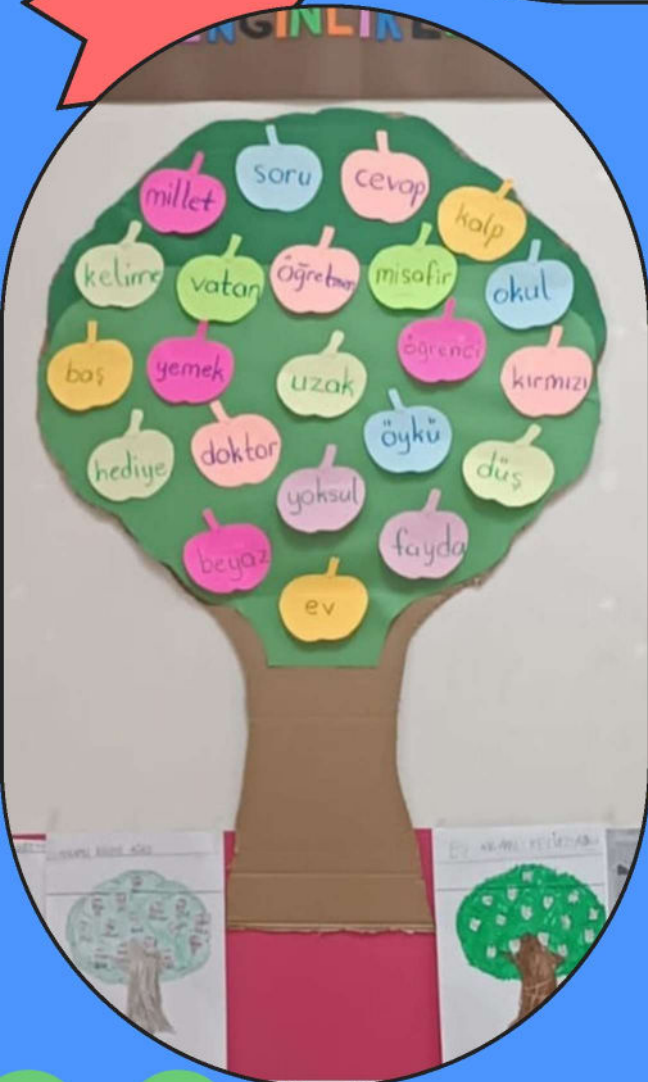 millet
soru
cevap
kalp
kelime
vatan
öğretmen
misafir
okul
baş
yemek
uzak
öğrenci
kırmızı
hediye
doktor
öykü
düş
yoksul
beyaz
fayda
ev